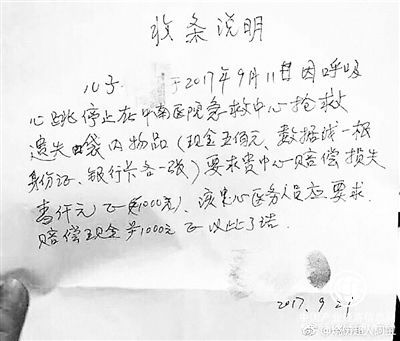 收条说明
儿子 于2017年9月11日因呼吸
心跳停止在中南医院急救中心抢救
遗失口袋内物品(现金五佰元,数据线一根
身份证、银行卡各一张)要求贵中心赔偿损失
壹仟元正(¥1000元),该中心医务人员应要求
赔偿现金¥1000元正以此了结.
2017.9.21